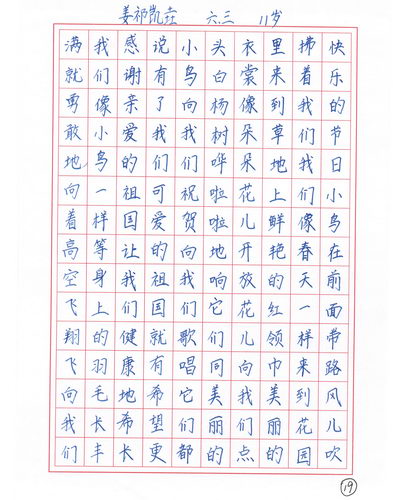 姜祁凯垚 六.三 11岁
快乐的节日小鸟在前面带路风儿吹
拂着我们我们像春天一样来到花园
里来到草地上鲜艳的红领巾美丽的
衣裳像朵朵花儿开放花儿向我们点
头白杨树哗啦啦地响它们同美丽的
小鸟向我们祝贺向我们歌唱它们都
说有了我们可爱的祖国就有希望更
感谢亲爱的祖国让我们健康地希长
我们像小鸟一样等身上的羽毛长丰
满就勇敢地向着高空飞翔飞向我们
19